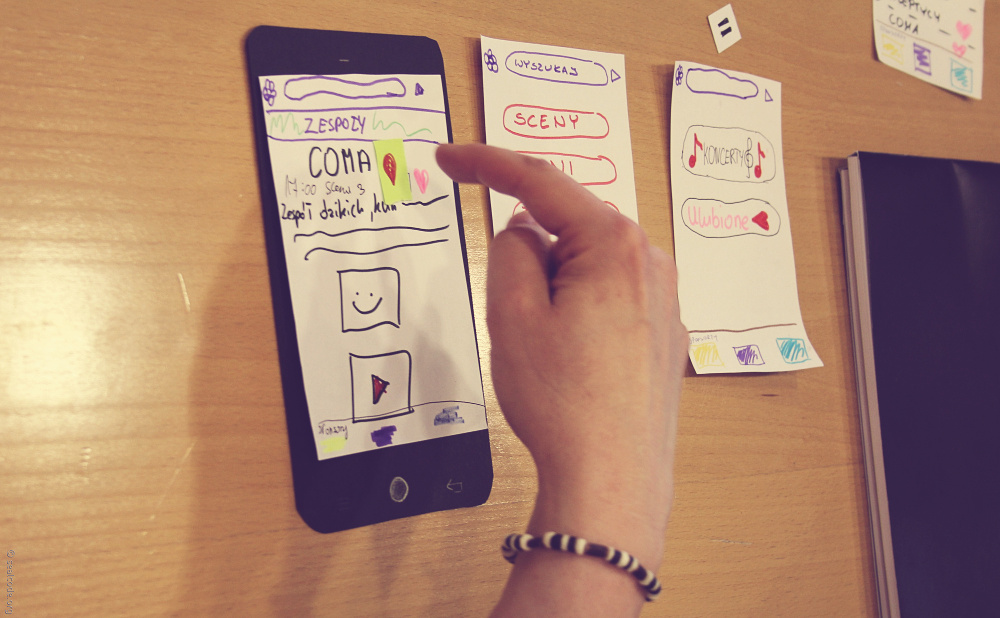 ZESPOŁY
COMA
17:00 Scena 3
Zespół dzikich, kun
WYSZUKAJ
SCENY
NI
KONCERTY
Ulubione
COMA